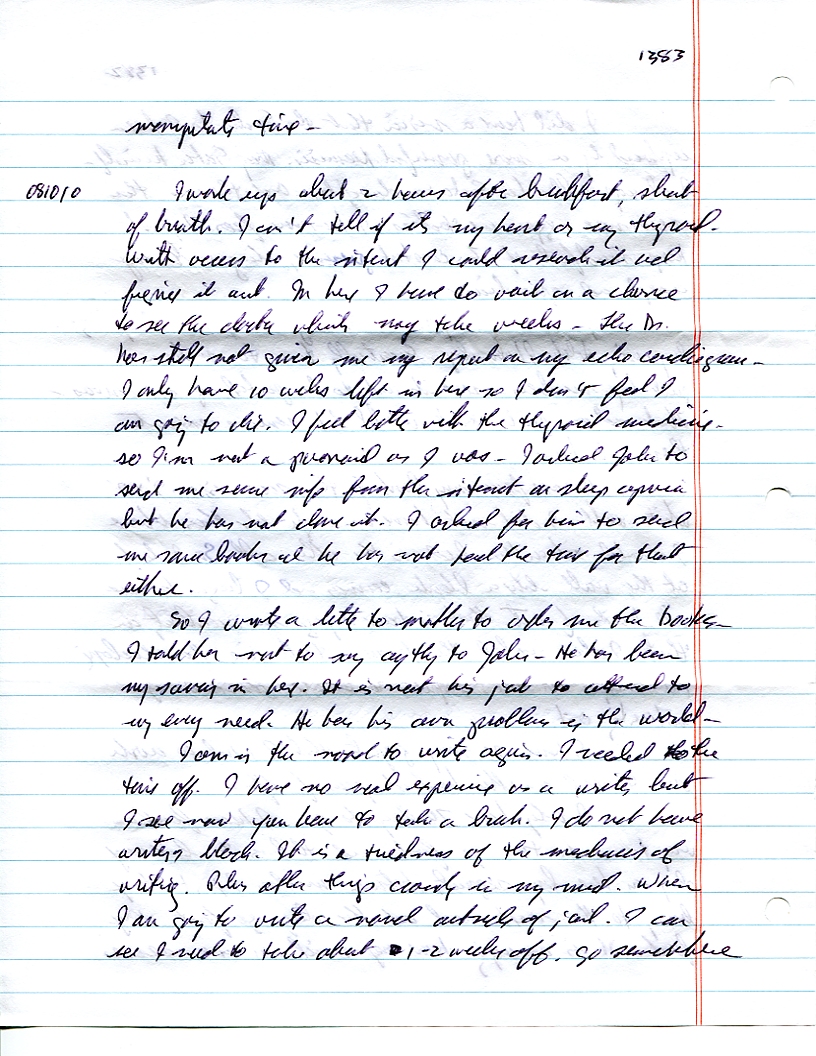 1383
manipulate time -
081010 I woke up about 2 hours after breakfast, short
of breath. I can't tell if its my heart or my thyroid.
With access to the internet I could research it and
figure it out. In here I have to wait on a chance
to see the doctor which may take weeks - The Dr.
has still not given me my report on my echo cardiogram -
I only have 10 weeks left in here so I don't feel I
am going to die. I feel better with the thyroid medicine -
so I'm not a paranoid as I was - I asked John to
send me some info from the internet on sleep apnia
but he has not done it. I asked for him to send
me some books and he has not had the time for that
either.
So I wrote a letter to mother to order me the books -
I told her not to say anything to John - He has been
my savior in here. It is not his job to attend to
my every need. He has his own problems in the world -
I am in the mood to write again. I needed the
time off. I have no real experience as a writer but
I see now you have to take a break. I do not have
writers block. It is a tiredness of the mechanics of
writing. Plus other things crowds in my mind. When
I am going to write a novel outside of jail. I can
see I need to take about 1-2 weeks off. go somewhere